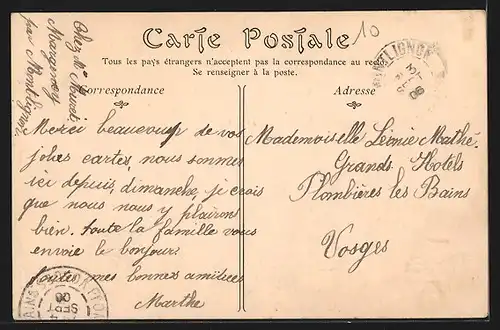 Carte Postale
10
Tous les pays étrangers n'acceptent pas la correspondance au recto
Se renseigner à la poste.
Correspondance
Adresse
Chez Mr
Margency
par Montlignon
Merci beaucoup de vos
jolies cartes, nous sommes
ici depuis dimanche, je crois
que nous nous y plairons
bien. toute la famille vous
envoie le bonjour
toutes mes bonnes amitiées
Marthe
Mademoiselle Léonie Mathé
Grands Hotels
Plombières les Bains
Vosges
TLIGNON
SEPT